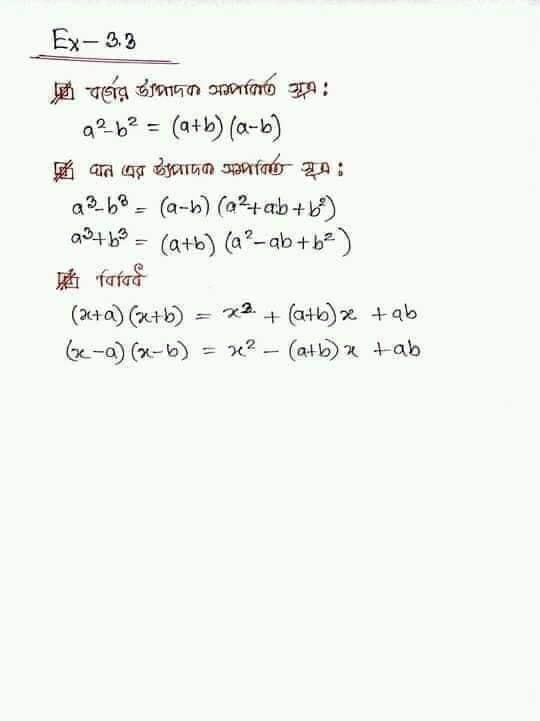 Ex - 3.3
বর্গের উৎপাদক সম্পর্কিত সূত্র :
a² - b² = (a+b) (a-b)
ঘন এর উৎপাদক সম্পর্কিত সূত্র :
a³ - b³ = (a-b) (a² + ab + b²)
a³ + b³ = (a+b) (a² - ab + b²)
বিবিধ
(x+a) (x+b) = x² + (a+b)x + ab
(x-a) (x-b) = x² - (a+b)x + ab